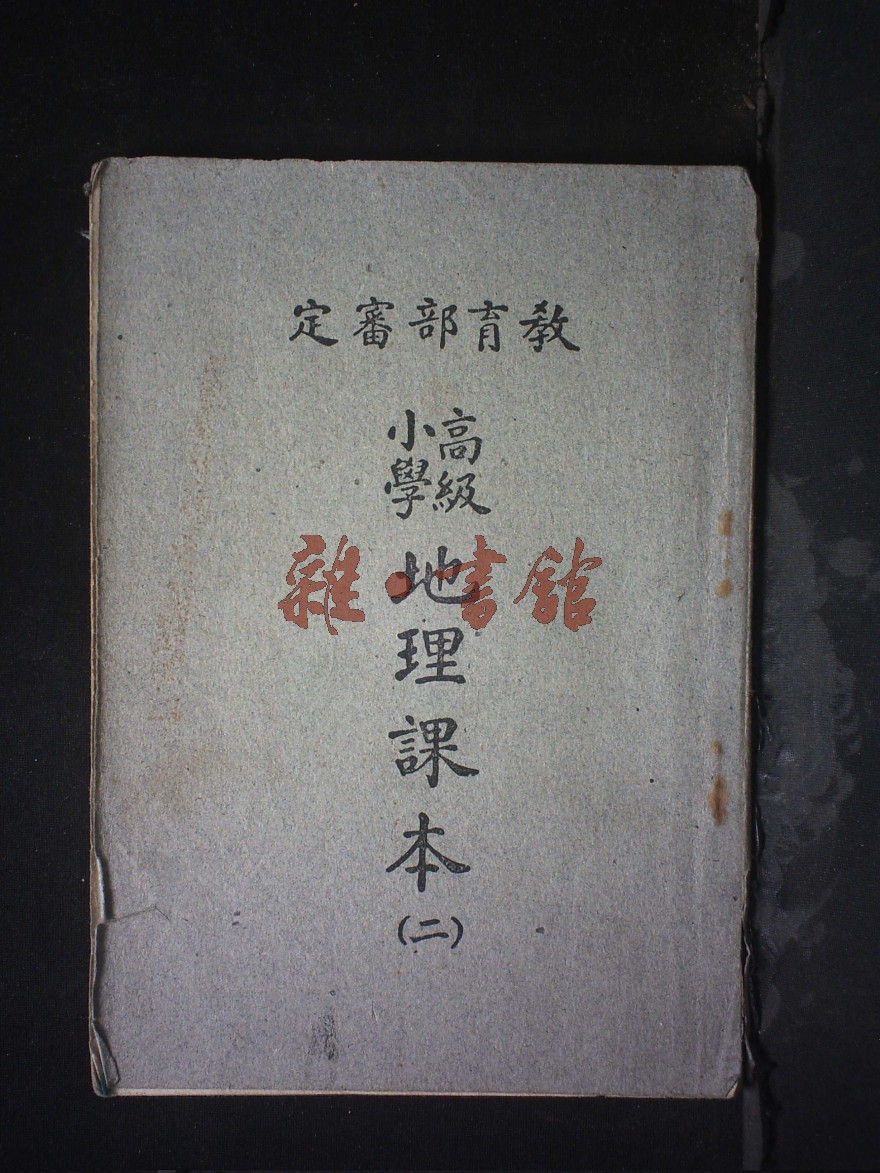 教育部審定
高級
小學
地理課本
(二)
雜·書館